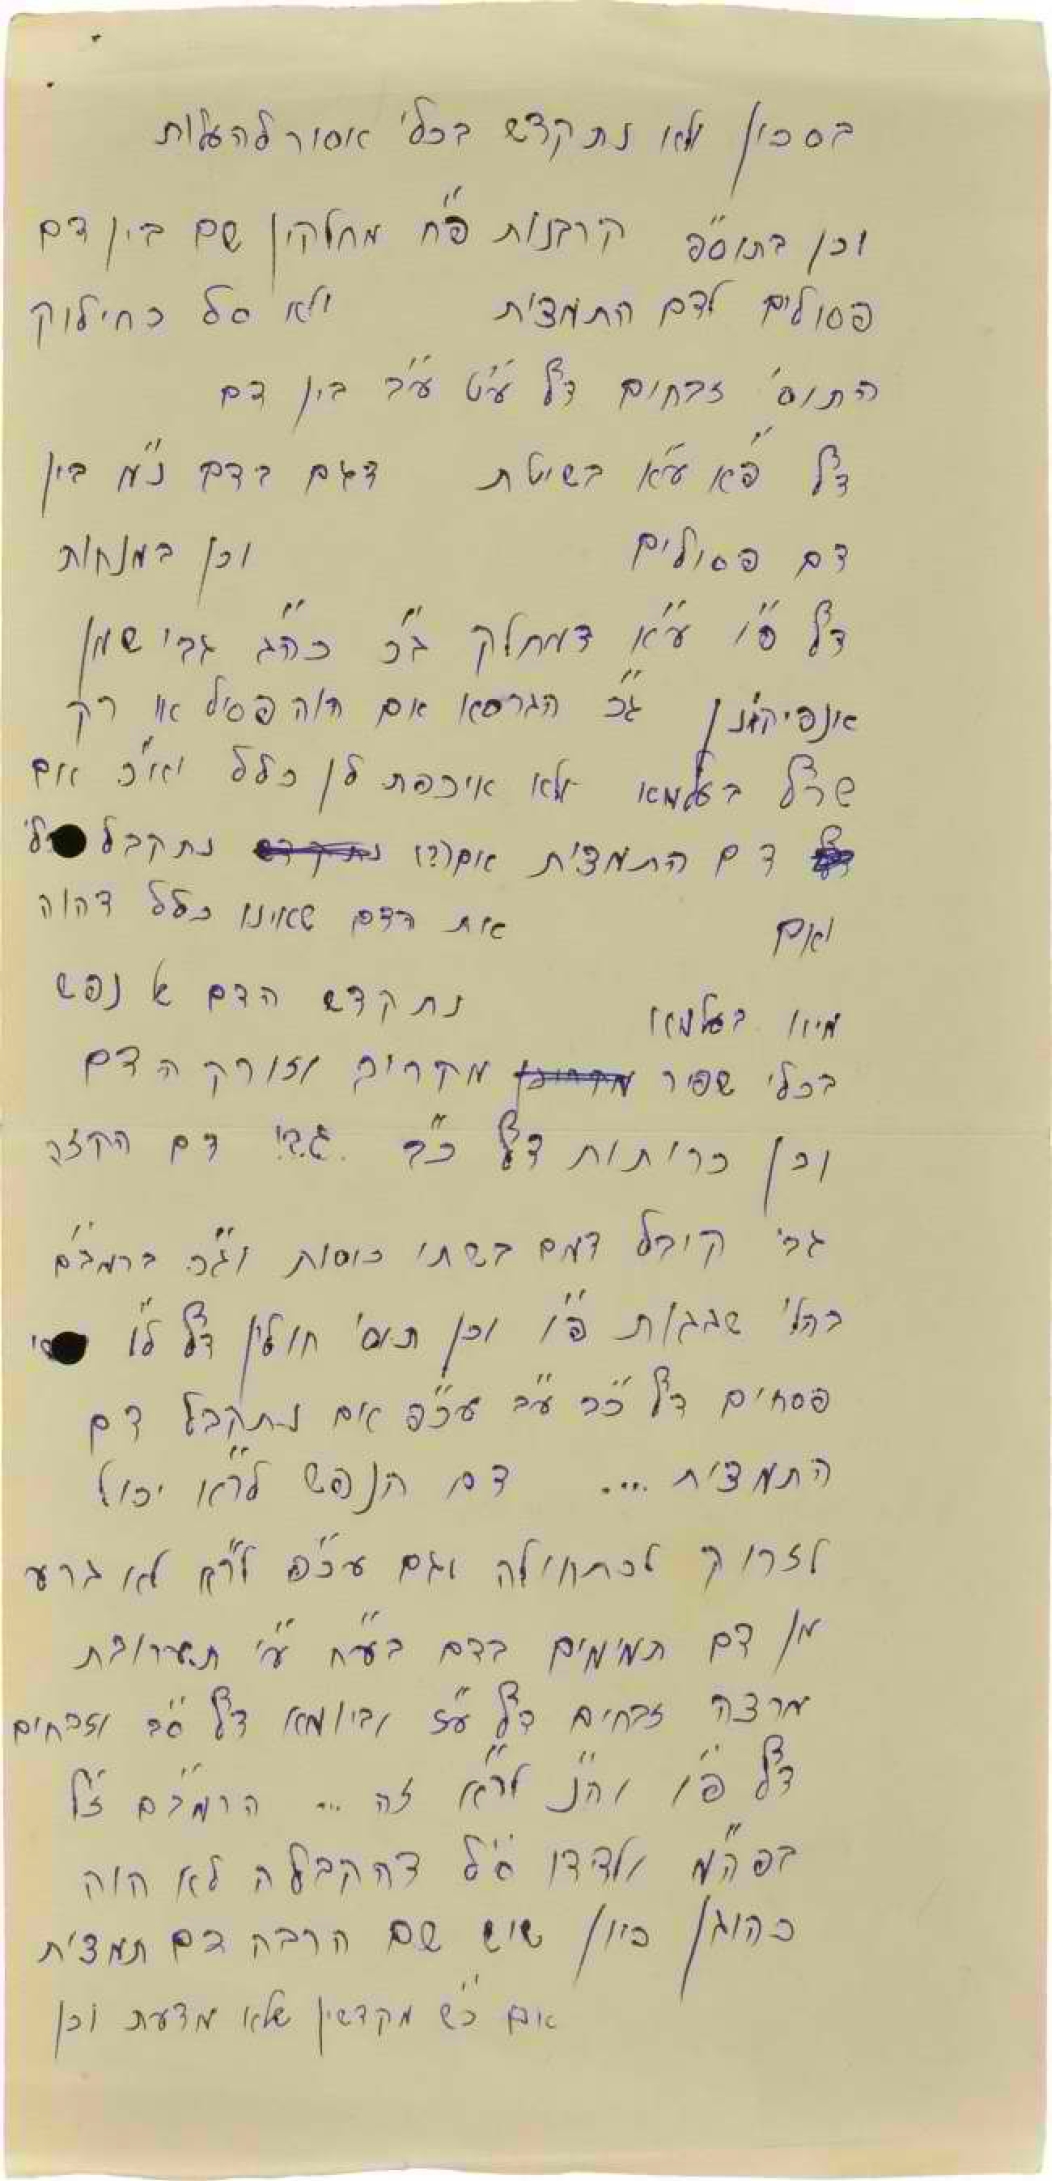 בסכין ולא נתקדש בכלי אסור להעלות
וכן בתוספ קרבנות פ״ח מחלקין שם בין דם
פסולים לדם התמצית ולא סל כחילוק
התוס׳ זבחים דף ע״ט ע״ב בין דם
דף פ״א ע״א בשיטת דגם בדם נ״מ בין
דם פסולים וכן במנחות
דף פ״ו ע״א דמחלק ג״כ כה״ג גבי שמן
אנפיקנון ג״כ הגרסא אם הוה פסול או רק
בעלמא ולא איכפת לן כלל וא״כ אם
דם התמצית אם(?) נתקבל
ואם את הדם שאינו כלל דהוה
מיא בעלמא נתקדש הדם נפש
בכלי שפיר מקריב וזורק הדם
וכן כריתות דף כ״ב גבי דם הקזה
גבי קיבל דמם בשתי כוסות וג״כ ברמב״ם
בהל׳ שגגות פ״ו וכן תוס׳ חולין דף ל״ו
פסחים דף כ״ב ע״ב עכ״פ אם נתקבל דם
התמצית .... דם הנפש לר״א יכול
לזרוק לכתחילה וגם עכ״פ לר״א לא גרע
מן דם תמימים בדם בע״ח ע״י תערובת
מרצה זבחים דף ע״ז וביומא דף ס״ב וזבחים
דף פ״ו וה״נ לר״א זה ... הרמב״ם ז״ל
בפה״מ ולדדי׳ ס״ל דהקבלה לא הוה
כהוגן כיון שיש שם הרבה דם תמצית
אם כ״ש מקדשין שלא מדעת וכן